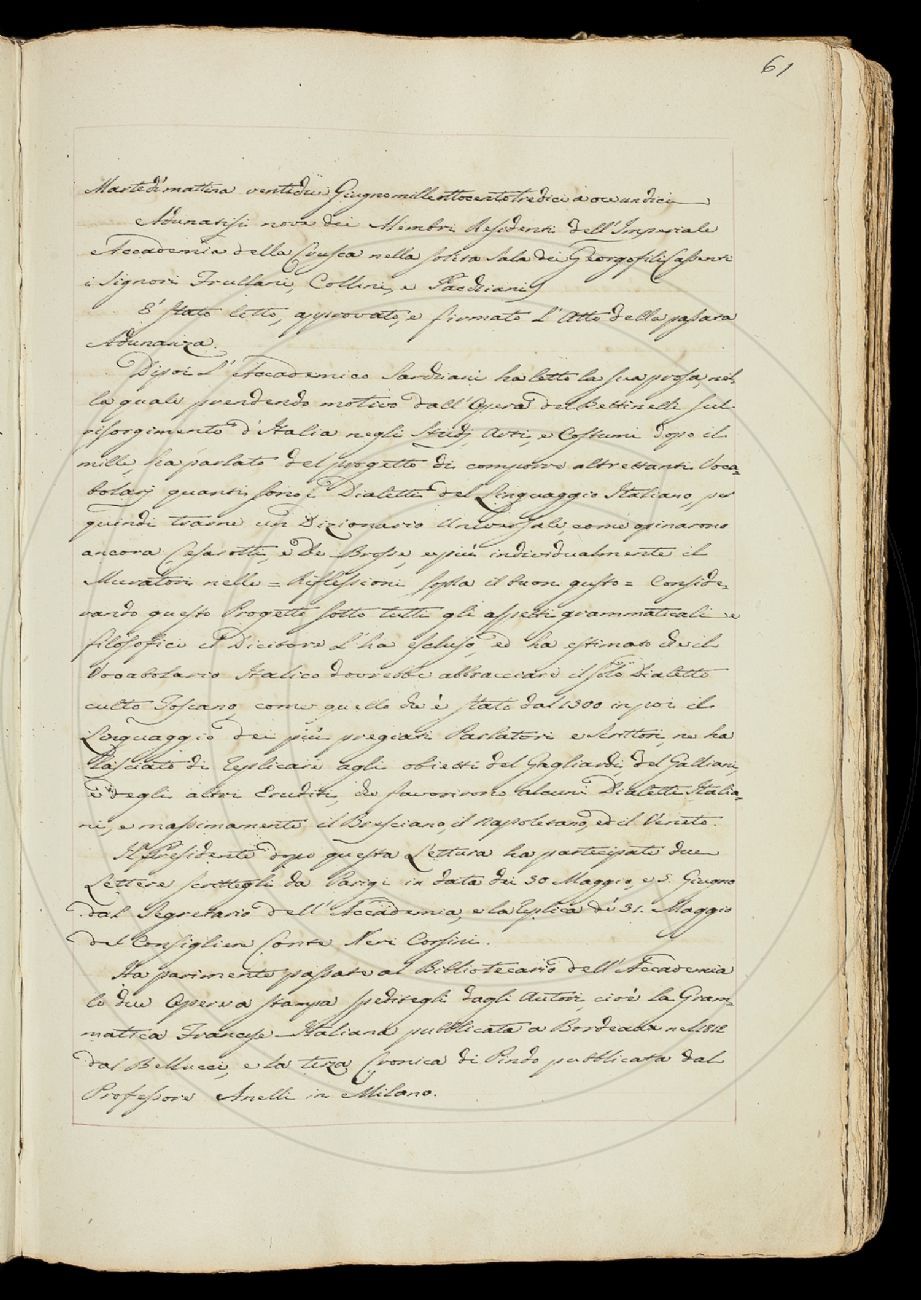 61
Martedì mattina ventidue Giugno mille ottocento tredici a ore undici
Adunatisi nove dei Membri Residenti dell'Imperiale
Accademia della Crusca nella solita Sala dei Georgofili, assenti
i Signori Frullani, Collini, e Pacchiani
E' stato letto, approvato, e firmato l'Atto della passata
Adunanza.
Dipoi l'Accademico Sarchiani ha letto la sua prosa, nel-
la quale prendendo motivo dall'Opera del Bettinelli sul
risorgimento d'Italia negli Studj, Arti, e Costumi dopo il
mille, ha parlato del progetto di comporre altrettanti Voca=
bolarj quanti sono i Dialetti del Linguaggio Italiano, per
quindi trarne un Dizionario Universale, come opinarono
ancora Cesarotti, e De-Brosse, e più individualmente il
Muratori nelle = Riflessioni sopra il buon gusto = Conside-
rando questo Progetto sotto tutti gli aspetti grammaticali e
filosofici il Dicitore l'ha escluso, ed ha estimato che il
Vocabolario Italico dovrebbe abbracciare il solo Dialetto
culto Toscano, come quello che è stato dal 1300 in poi il
Linguaggio dei più pregiati Parlatori e Scrittori, ne ha
lasciato di replicare agli obietti del Gagliardi, del Galliani,
e degli altri Eruditi, che favorirono alcuni Dialetti Italia=
ni, e massimamente il Bresciano, il Napoletano, ed il Veneto.
Il Presidente dopo questa Lettura ha partecipate due
Lettere scrittegli da Parigi in data dei 30 Maggio, e 5. Giugno
dal Segretario dell'Accademia, e la replica de' 31. Maggio
del Consigliere Conte Neri Corsini.
Ha parimente passate al Bibliotecario dell'Accademia
le due Opere a stampa speditegli dagli Autori, cioè la Gram=
matica Francese-Italiana pubblicata a Bordeaux nel 1812
dal Bellucci, e la terza Cronica di Pindo pubblicata dal
Professore Anelli in Milano.